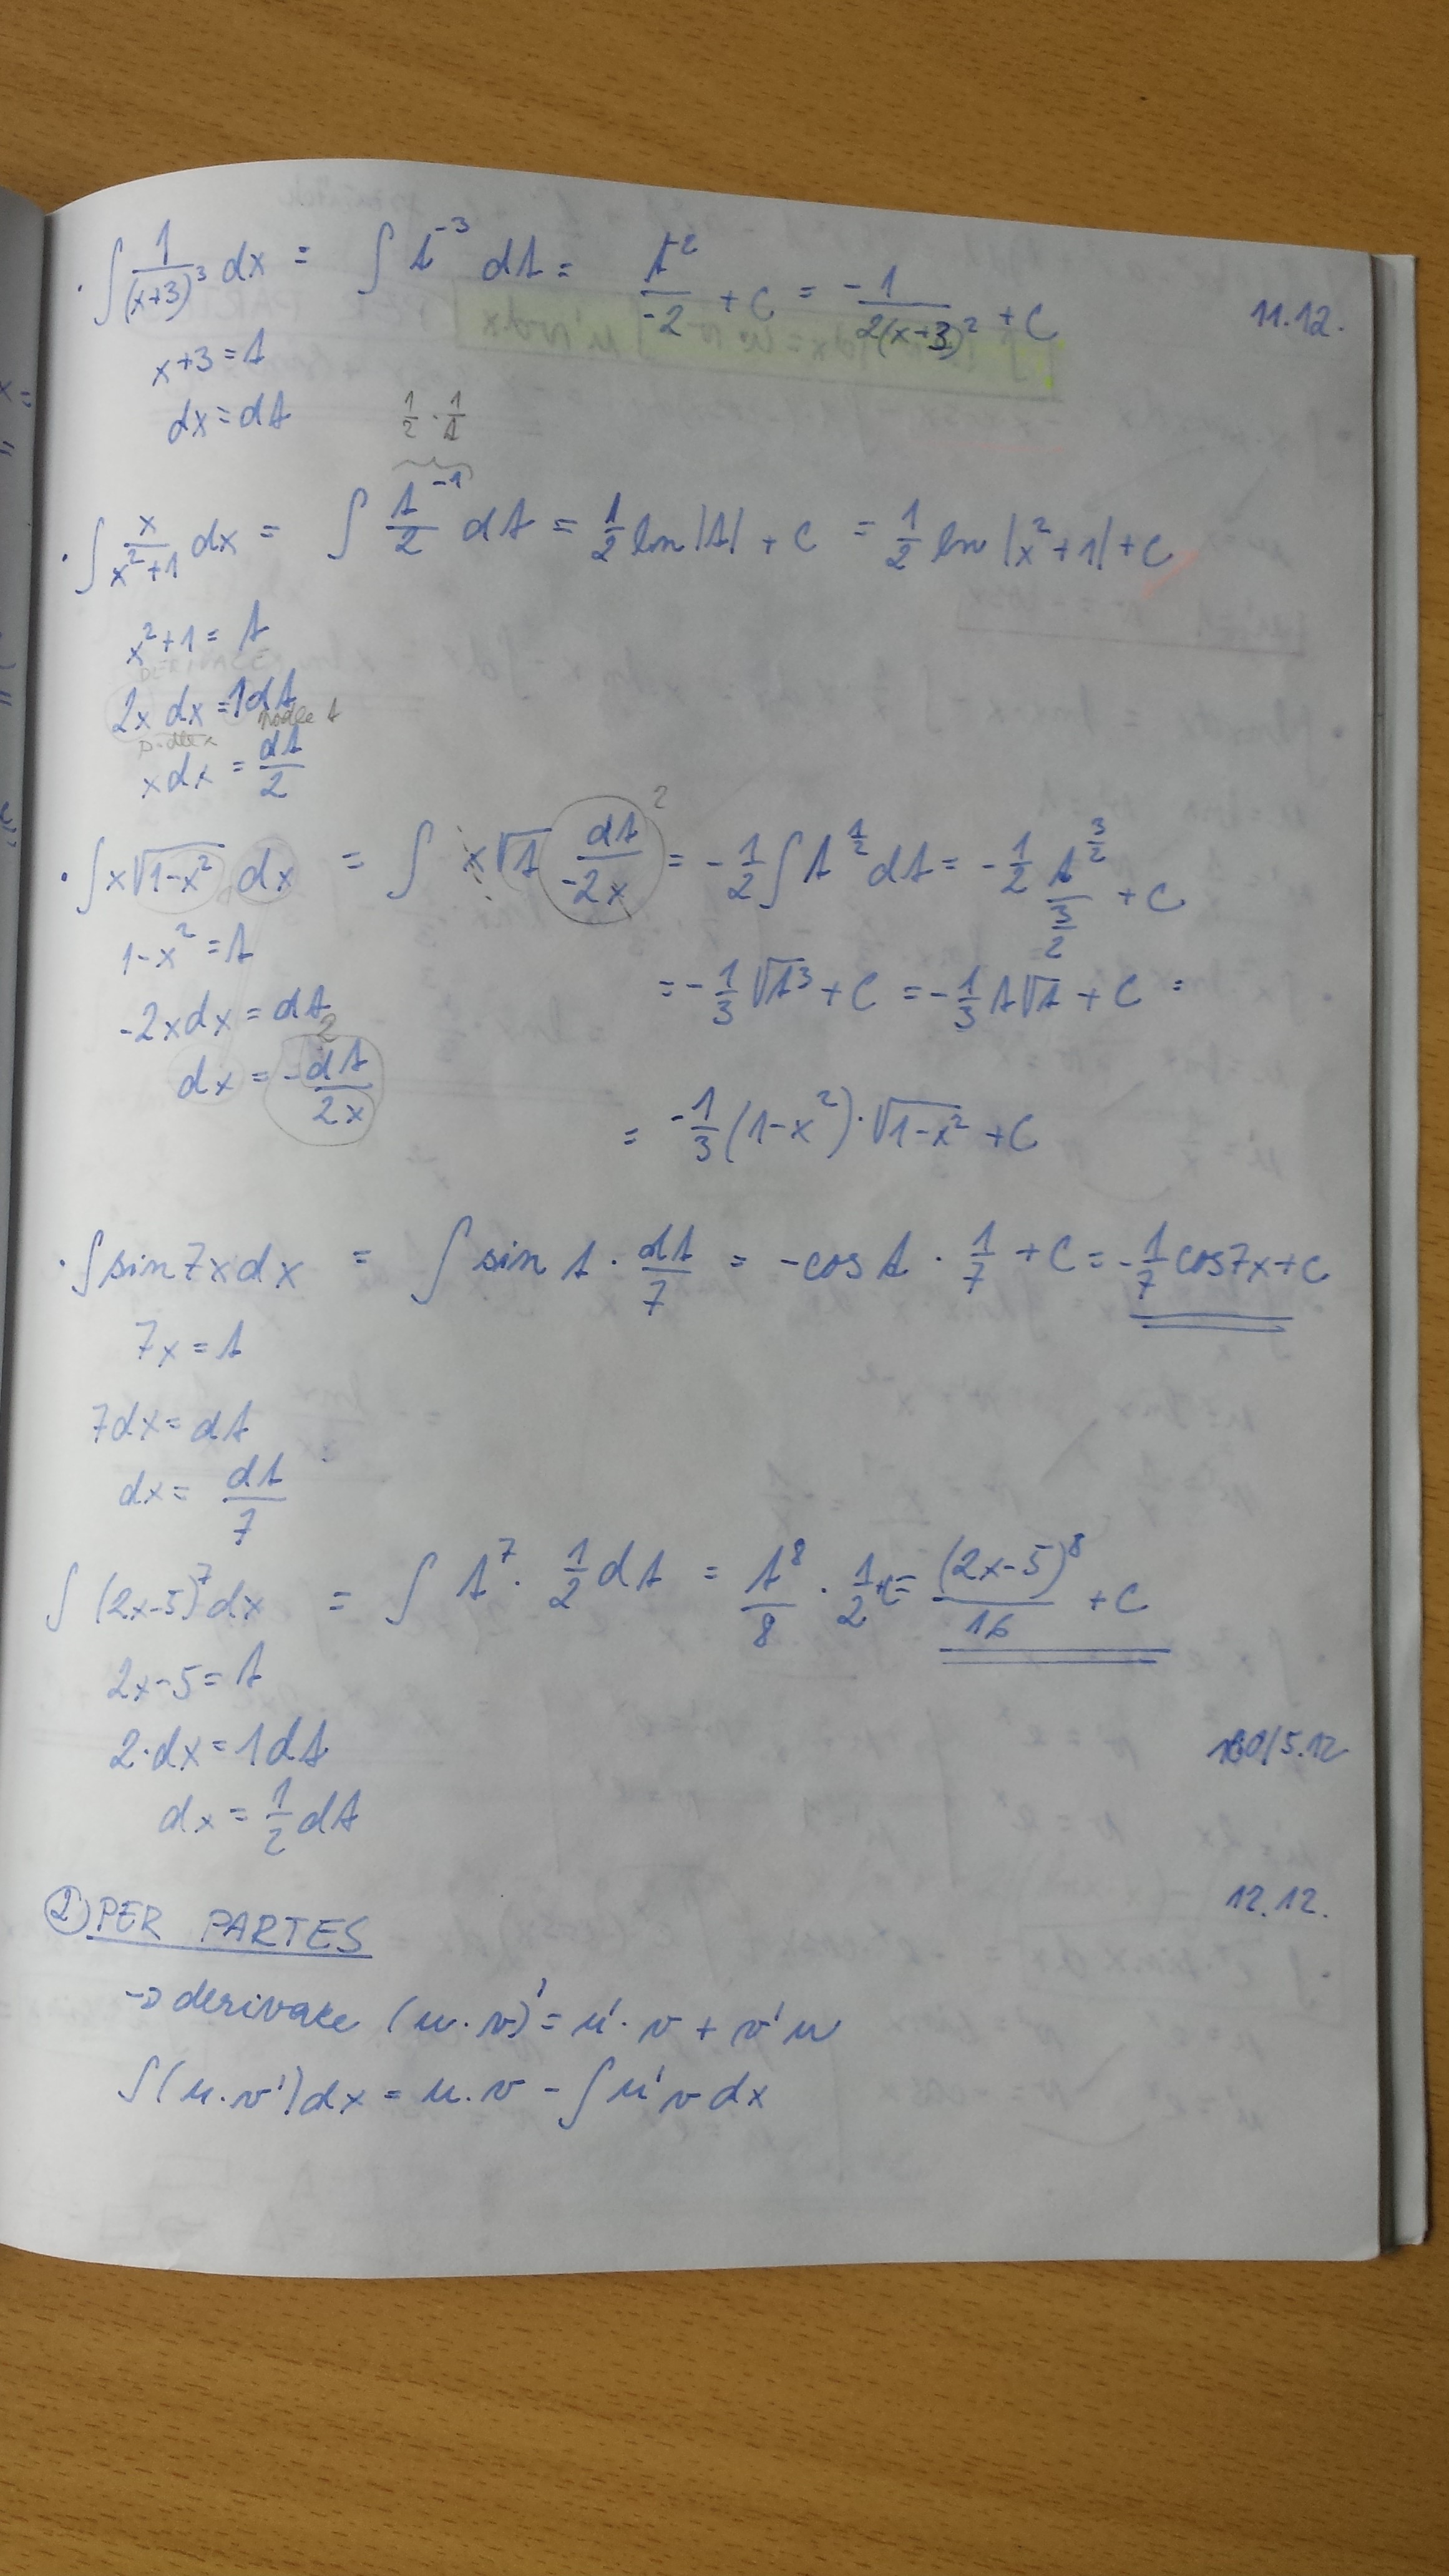 · ∫ 1/(x+3)³ dx = ∫ t⁻³ dt = t²/-2 + C = -1/2(x+3)² + C
11.12.
x+3 = t
dx = dt
1/2 · 1/t
· ∫ x/x²+1 dx = ∫ t⁻¹/2 dt = 1/2 ln|t| + C = 1/2 ln|x²+1| + C
x²+1 = t
2x dx = 1dt
podle x podle t
x dx = dt/2
· ∫ x√1-x² dx = ∫ x√t dt/-2x = -1/2 ∫ t^1/2 dt = -1/2 t^3/2 / 3/2 + C
2
1-x² = t
= -1/3 √t³ + C = -1/3 t√t + C =
-2x dx = dt
2
dx = -dt/2x
= -1/3 (1-x²)·√1-x² + C
· ∫ sin 7x dx = ∫ sin t · dt/7 = -cos t · 1/7 + C = -1/7 cos7x + C
7x = t
7dx = dt
dx = dt/7
∫ (2x-5)⁷ dx = ∫ t⁷ · 1/2 dt = t⁸/8 · 1/2 + C = (2x-5)⁸/16 + C
2x-5 = t
2·dx = 1dt
dx = 1/2 dt
12.12.
② PER PARTES
→ derivace (u·v)' = u'·v + v'u
∫(u·v')dx = u·v - ∫u'v dx